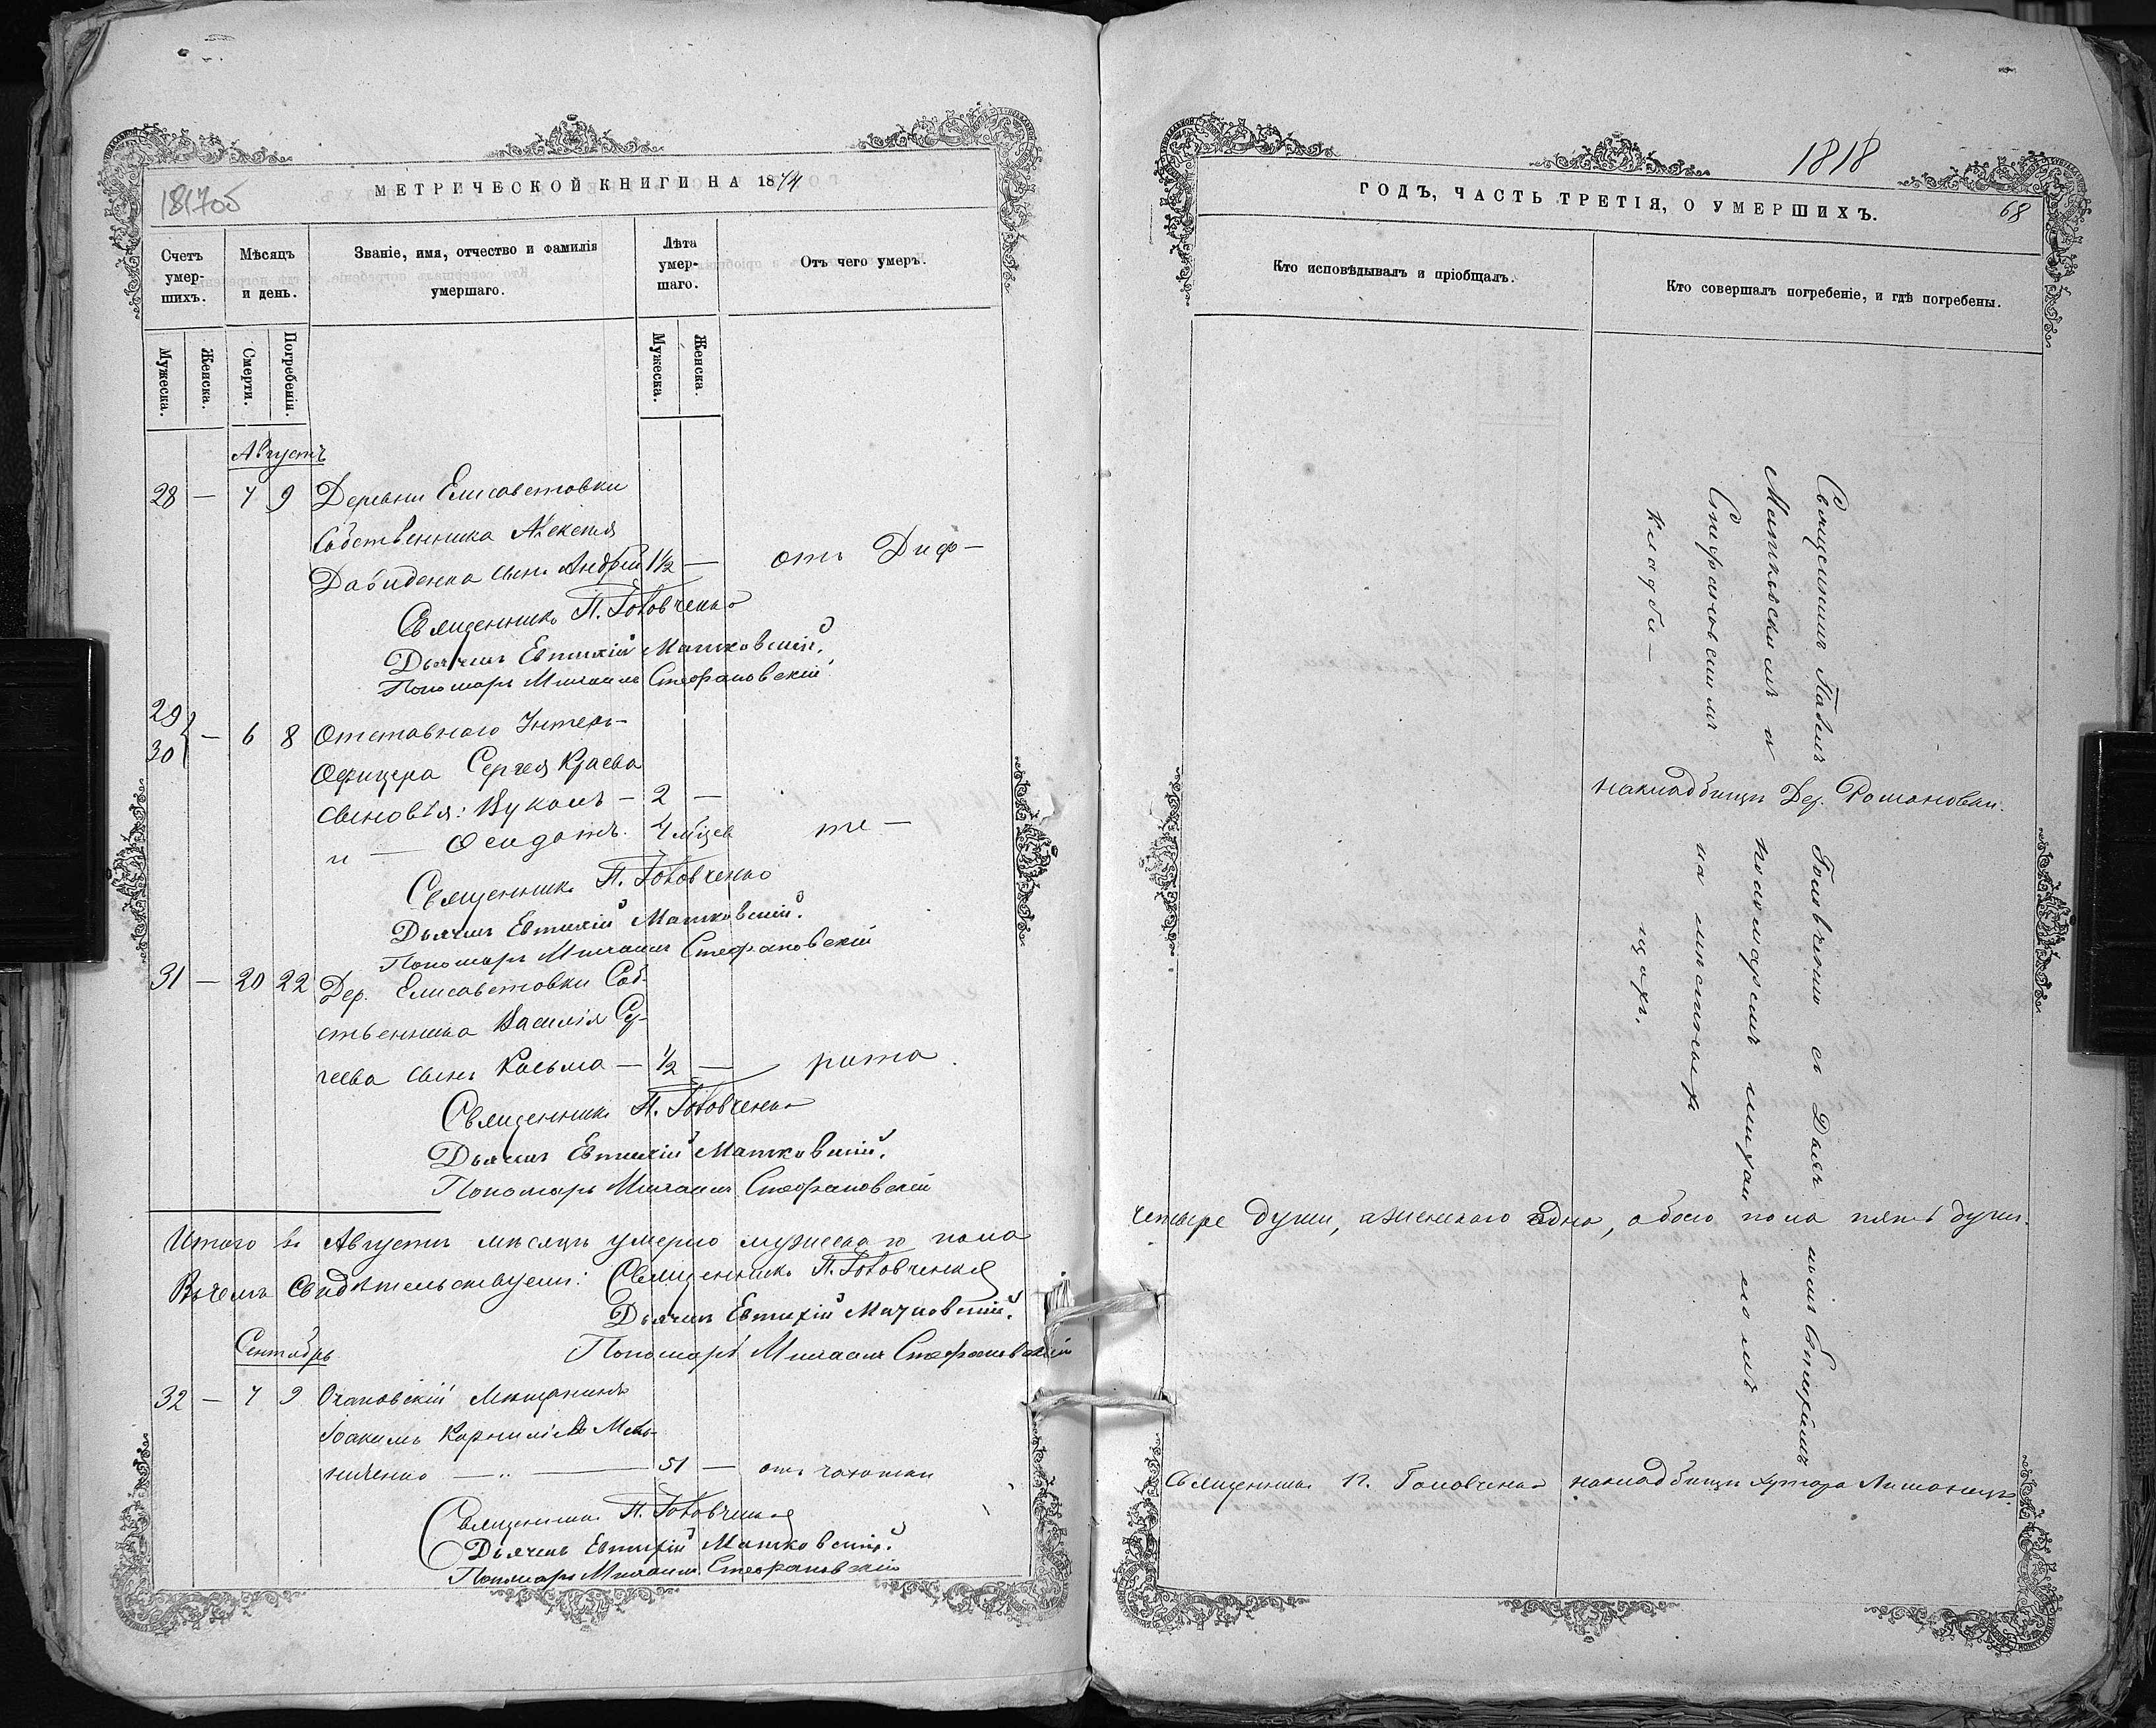 1817об
МЕТРИЧЕСКОЙ КНИГИ НА 1874
Счетъ умер-шихъ.
Мѣсяцъ и день.
Званіе, имя, отчество и фамилія умершаго.
Лѣта умер-шаго.
Отъ чего умеръ.
Мужеска.
Женска.
Смерти.
Погребенія.
Мужеска.
Женска.
Августъ
28 — 7 9 Деревни Елисаветовки
Собственника Алексея
Давиденка сынъ Андрей 1½ — отъ Диф—
Священникъ П. Головченко
Дьячекъ Евтихій Матковскій.
Пономарь Михаилъ Стефановскій
29 30 — 6 8 Отставного Унтеръ-
Офицера Сергея Краева
сыновья: Вуколъ — 2 —
и — Феодотъ. 4 мѣцев те —
Священникъ П. Головченко
Дьячекъ Евтихій Матковскій.
Пономарь Михаилъ Стефановскій
31 — 20 22 Дер. Елисаветовки Соб-
ственника Василія Су-
чева сынъ Косьма — ½ — рита.
Священникъ П. Головченко
Дьячекъ Евтихій Матковскій.
Пономарь Михаилъ Стефановскій
Итого въ Августѣ мѣсяцѣ умерло мужеска го пола
Въ чемъ свидѣтельствуемъ: Священникъ П. Головченко
Дьячекъ Евтихій Матковскій.
Пономарь Михаилъ Стефановскій
Сентябрь
32 — 7 9 Очаковскій Мещанинъ
Іоакимъ Корнилі Мель-
ниченко — — 51 — отъ чахотки
Священникъ П. Головченко
Дьячекъ Евтихій Матковскій.
Пономарь Михаилъ Стефановскій
1818
68
ГОДЪ, ЧАСТЬ ТРЕТІЯ, О УМЕРШИХЪ.
Кто исповѣдывалъ и пріобщалъ.
Кто совершалъ погребеніе, и гдѣ погребены.
Священникъ Павелъ Головченко съ Дьяч комъ Евтихіемъ
Матковскимъ и пономаремъ Михаи ломъ
Стефановскимъ на мѣстныхъ
кладби — щахъ.
на кладбищѣ Дер. Романовки.
четыре души, а женскаго одна, обоего пола пять душъ.
Священникъ П. Головченко на кладбищѣ хутора Лиманцы.